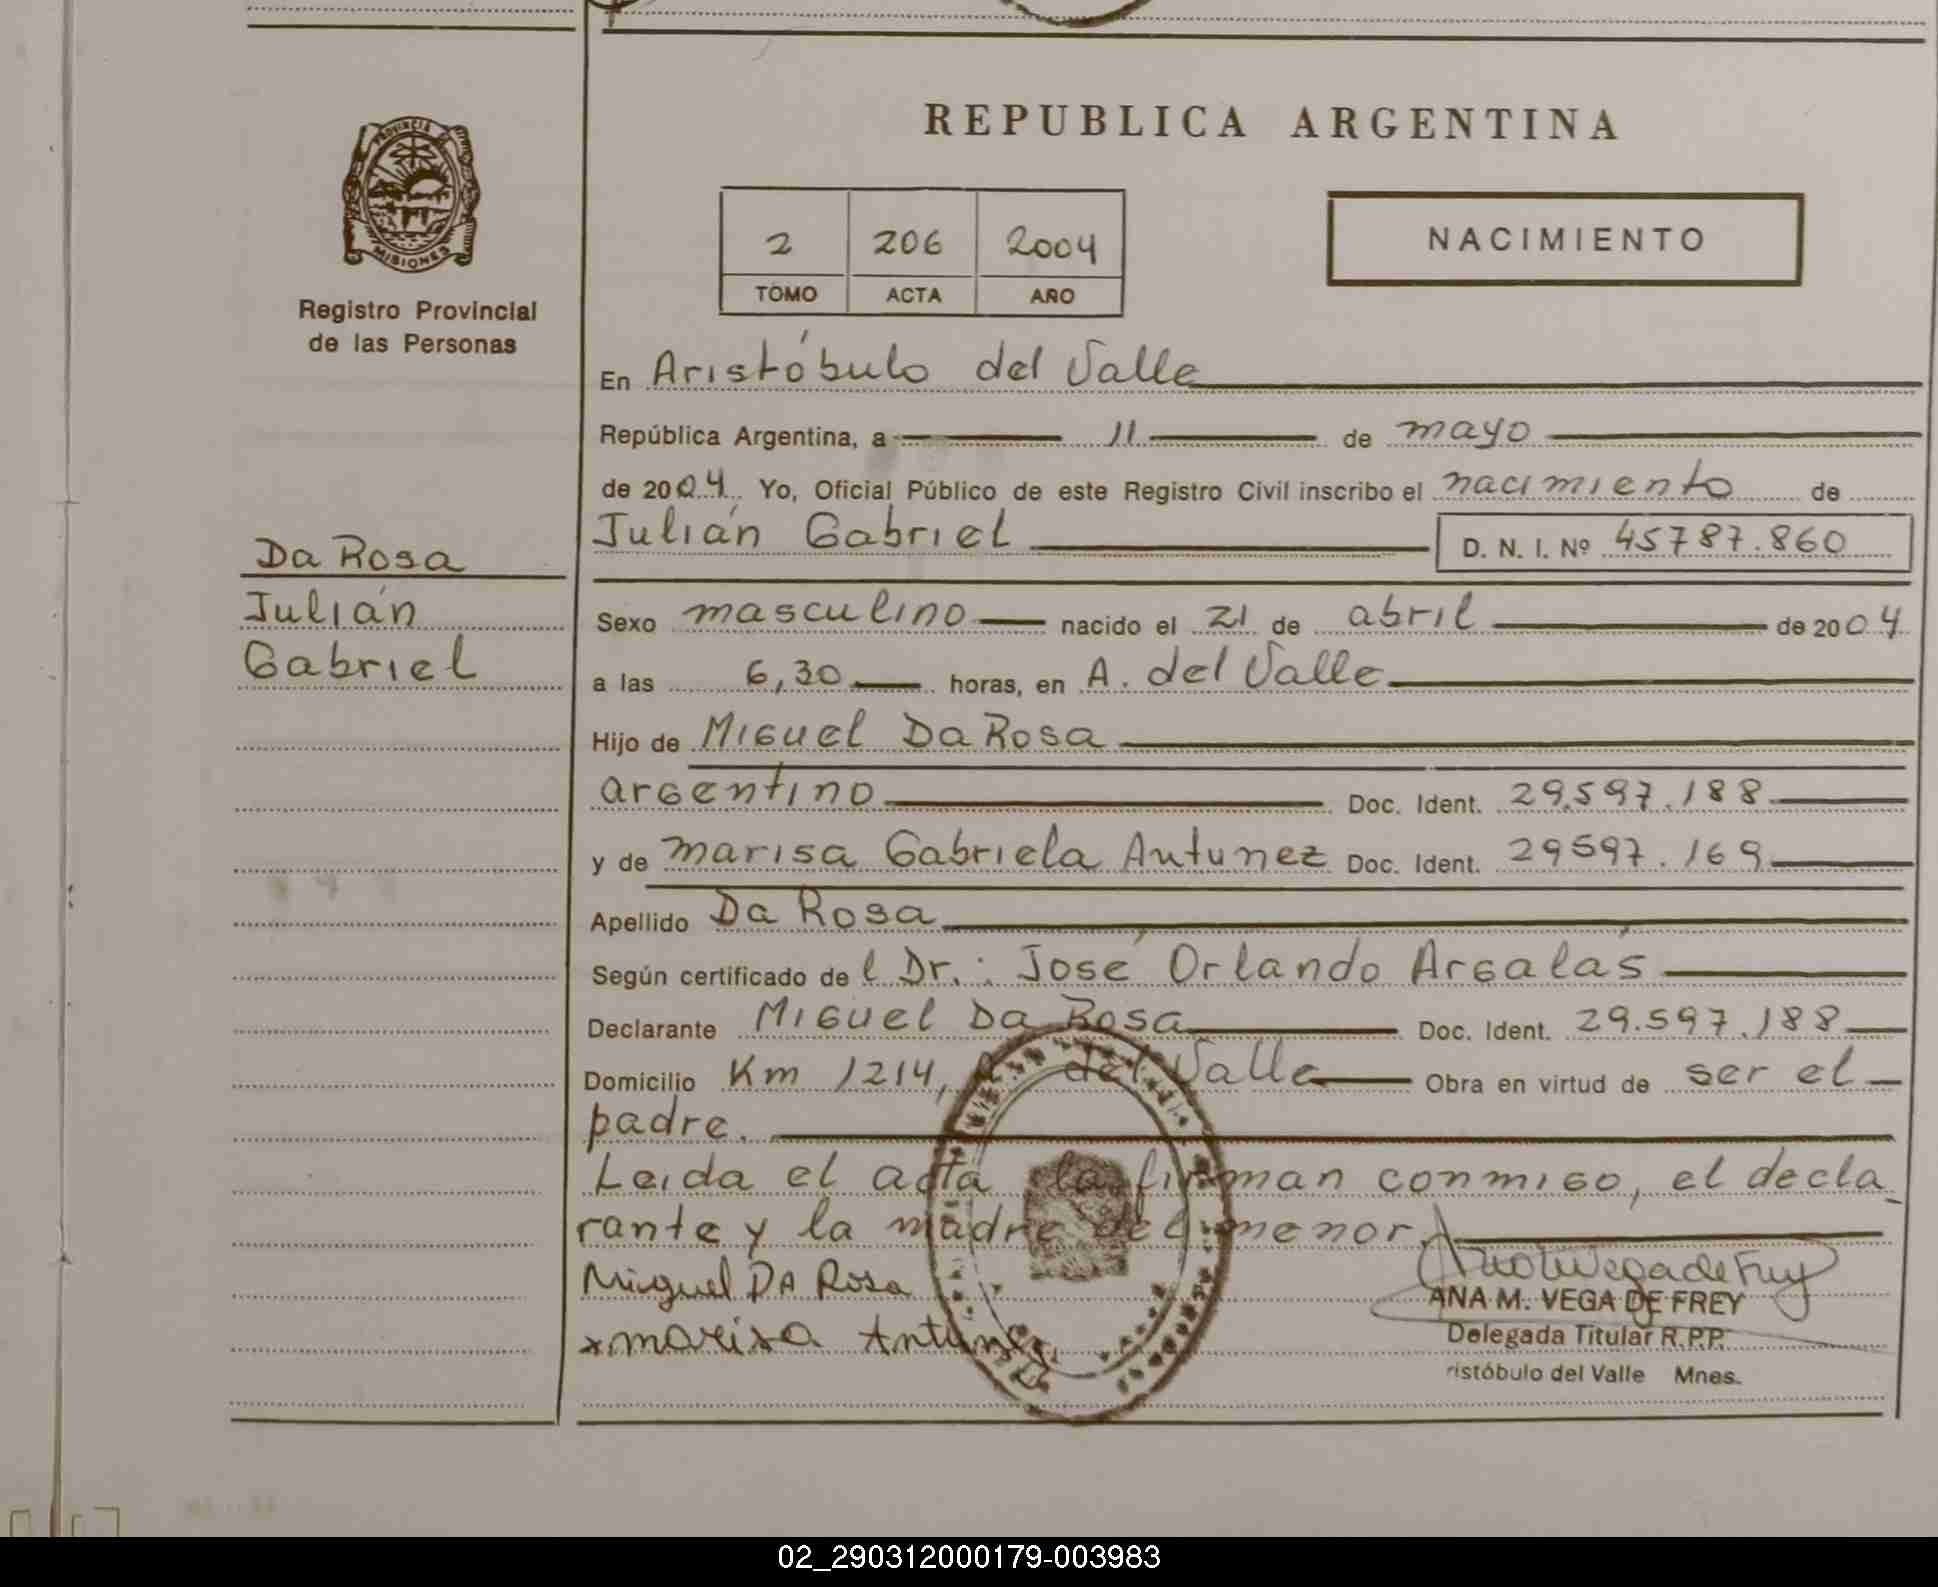 REPUBLICA ARGENTINA
PROVINCIA DE
MISIONES
Registro Provincial
de las Personas
2 206 2004
TOMO ACTA AÑO
NACIMIENTO
En Aristóbulo del Valle
República Argentina, a 11 de mayo
de 2004. Yo, Oficial Público de este Registro Civil inscribo el nacimiento de
Julián Gabriel D. N. I. Nº 45787.860
Da Rosa
Julián
Gabriel
Sexo masculino nacido el 21 de abril de 2004
a las 6,30 horas, en A. del Valle
Hijo de Miguel Da Rosa
argentino Doc. Ident. 29.597.188
y de marisa Gabriela Antunez Doc. Ident. 29597.169
Apellido Da Rosa
Según certificado de l Dr.: José Orlando Argalás
Declarante Miguel Da Rosa Doc. Ident. 29.597.188
Domicilio Km 1214, A. del Valle Obra en virtud de ser el
padre.
Leida el acta la firman conmigo, el decla_
rante y la madre del menor.
Miguel DA Rosa
x marisa Antunez
ANA M. VEGA DE FREY
Delegada Titular R.P.P.
ristóbulo del Valle Mnes.
02_290312000179-003983